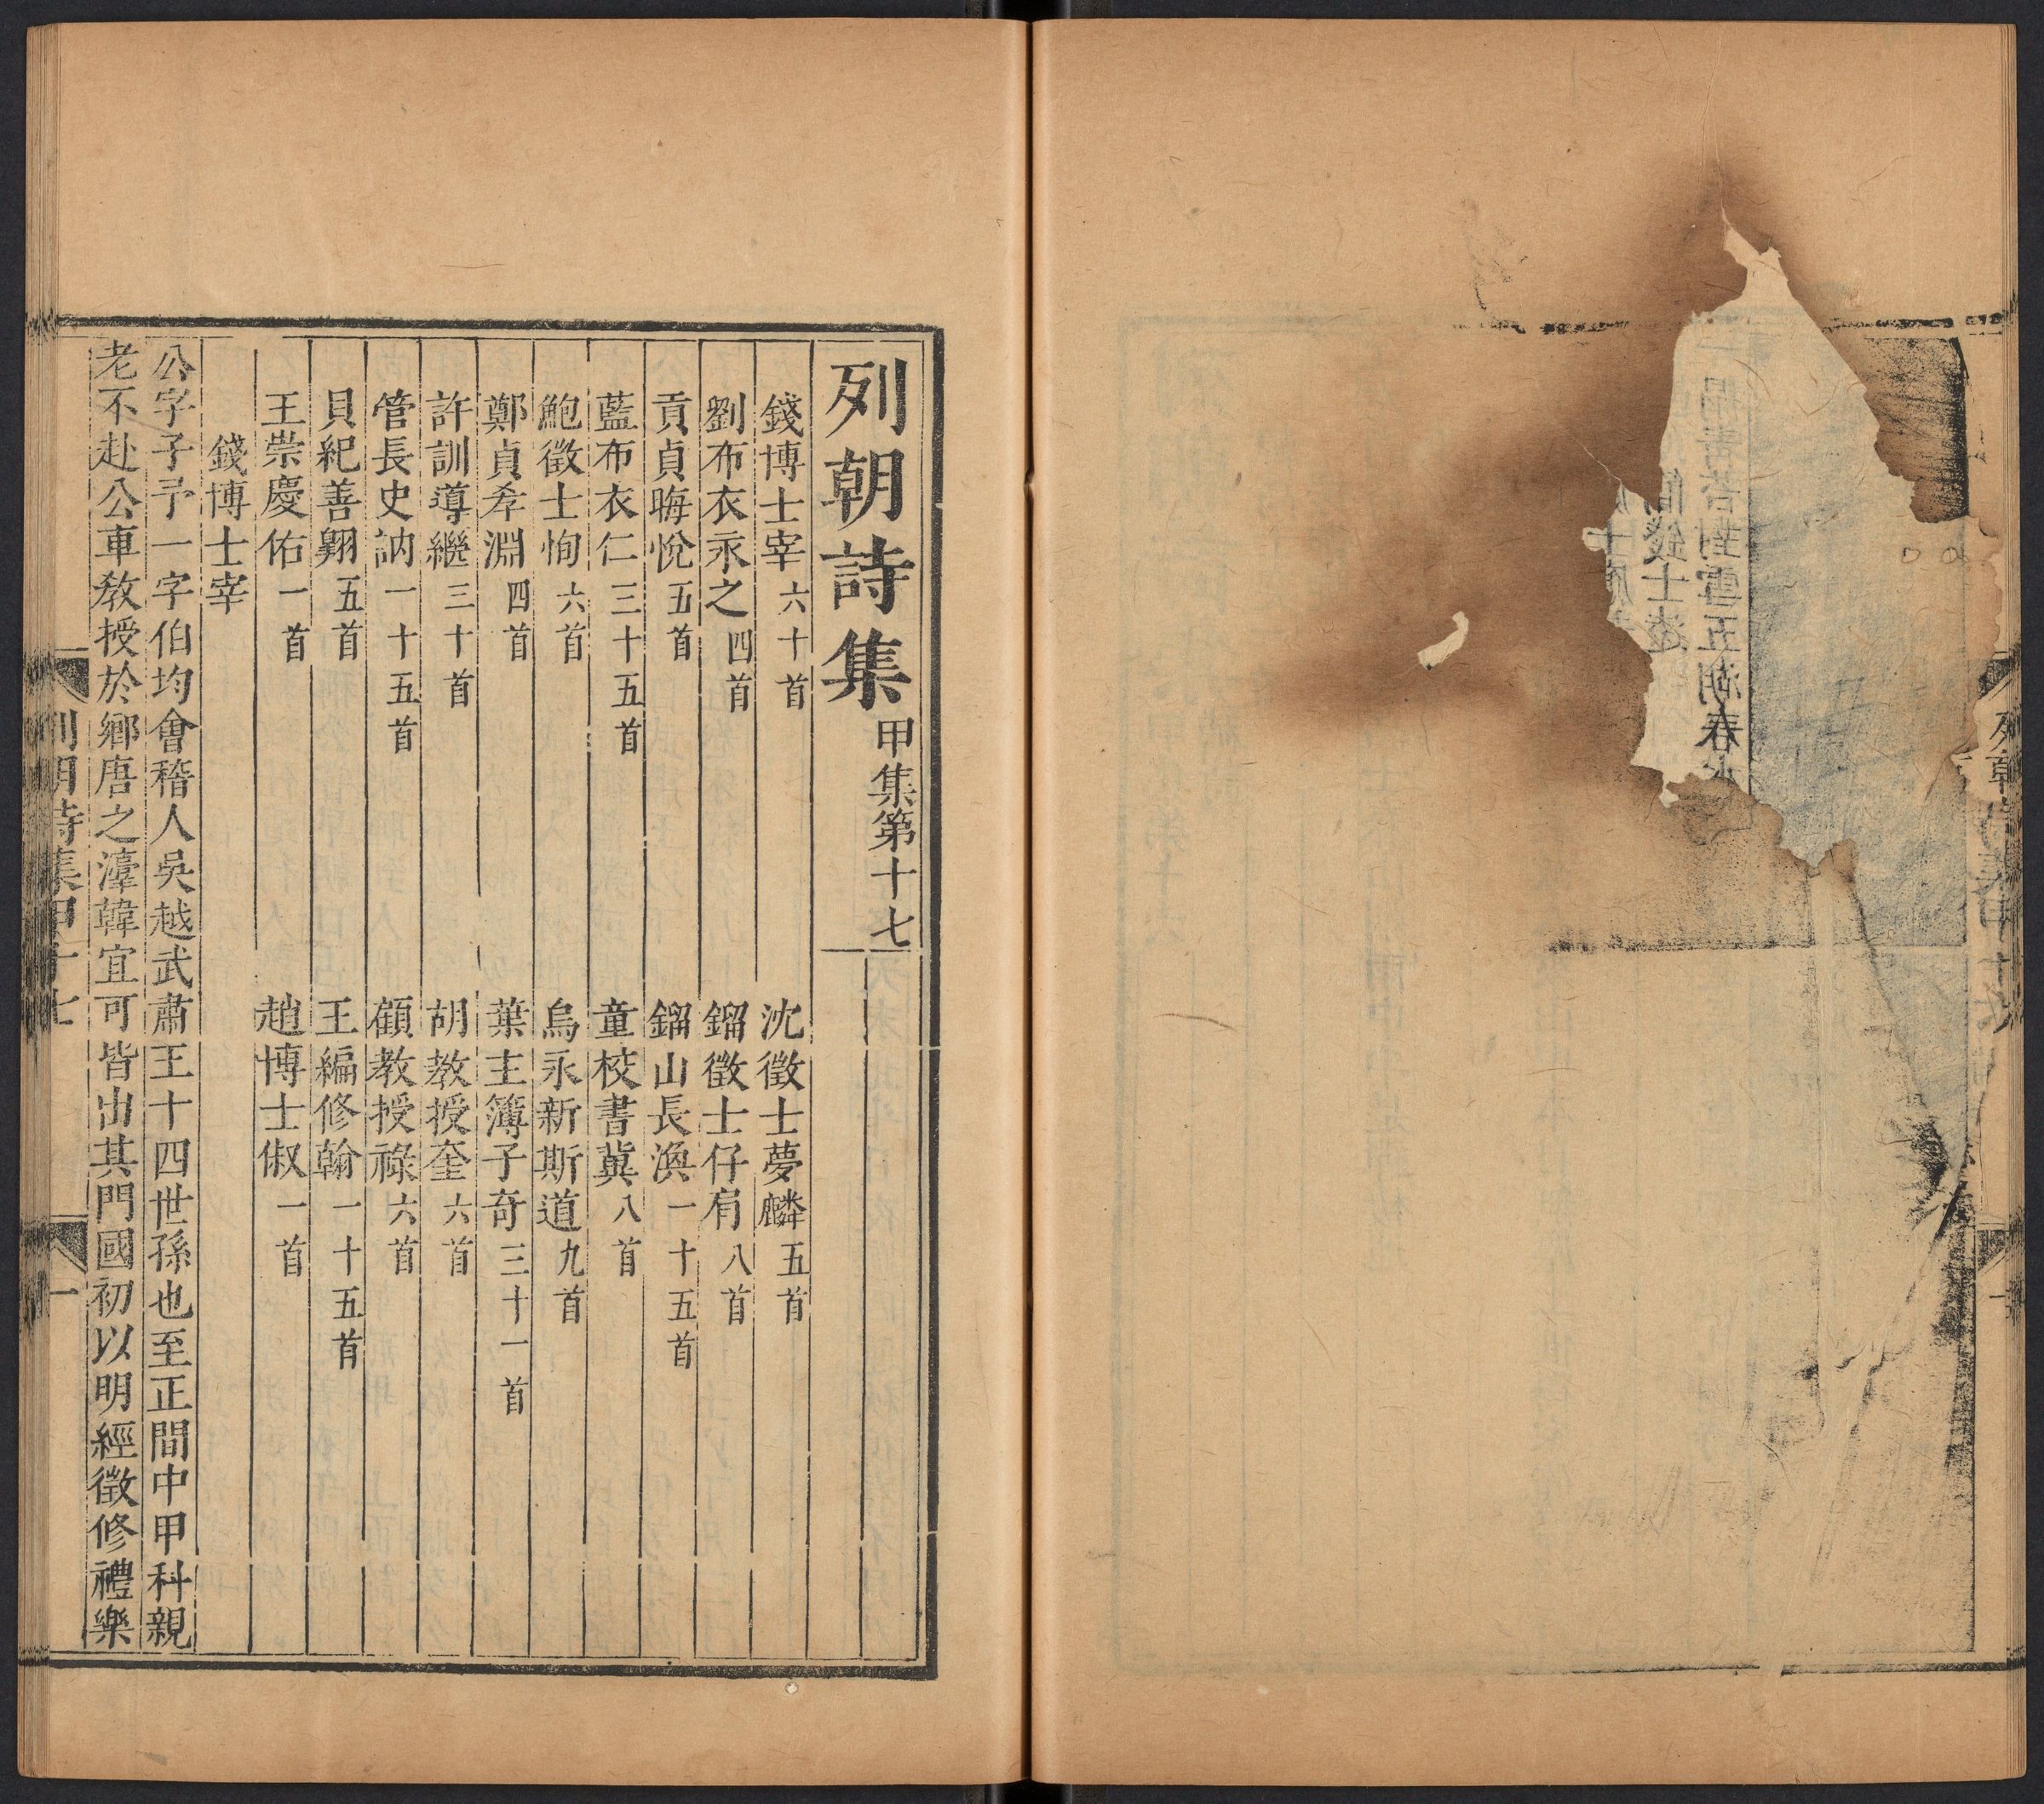 列朝詩集 甲集第十七
錢博士宰 六十首 沈徵士夢麟 五首
劉布衣永之 四首 鎦徵士仔肩 八首
貢貞晦悅 五首 鎦山長渙 一十五首
藍布衣仁 三十五首 童校書冀 八首
鮑徵士恂 六首 烏永新斯道 九首
鄭貞孝淵 四首 葉主簿子奇 三十一首
許訓導繼 三十首 胡教授奎 六首
管長史訥 一十五首 顧教授祿 六首
貝紀善翱 五首 王編修翰 一十五首
王崇慶佑 一首 趙博士俶 一首
錢博士宰
公字子予一字伯均會稽人吳越武肅王十四世孫也至正間中甲科親
老不赴公車教授於鄉唐之湻韓宜可皆出其門國初以明經徵修禮樂
列朝詩集甲十七 一